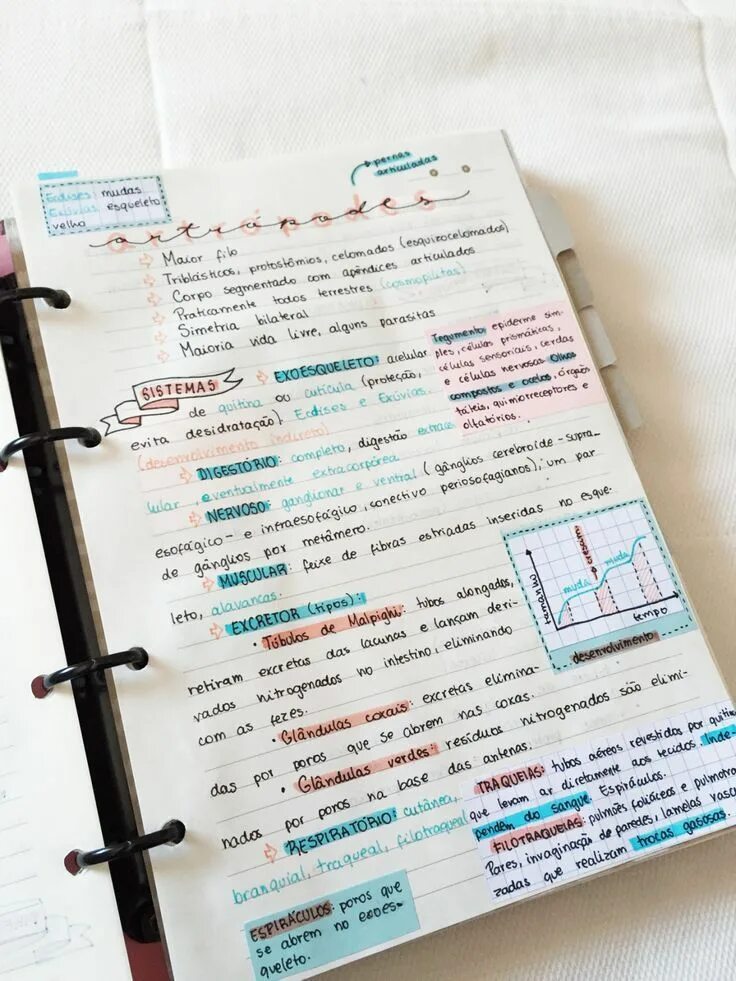 pernas
articuladas
Ecdises: mudas
Exúvias: esqueleto
velho
artrópodes
Maior filo
Triblásticos, protostômios, celomados (esquizocelomados)
Corpo segmentado com apêndices articulados
Praticamente todos terrestres (cosmopolitas)
Simetria bilateral
Maioria vida livre, alguns parasitas
SISTEMAS
EXOESQUELETO: acelular
de quitina ou cutícula (proteção,
evita desidratação). Ecdises e Exúvias.
(desenvolvimento indireto)
Tegumento: epiderme sim-
ples, células prismáticas,
células sensoriais, cerdas
e células nervosas. Olhos
compostos e ocelos, órgãos
táteis, quimiorreceptores e
olfatórios.
DIGESTÓRIO: completo, digestão extrace
lular, eventualmente extracorpórea
NERVOSO: ganglionar e ventral (gânglios cerebroide-supra_
esofágico- e infraesofágico, conectivo periosofagianos); um par
de gânglios por metâmero.
MUSCULAR: feixe de fibras estriadas inseridas no esque-
leto, alavancas.
EXCRETOR (tipos):
• Túbulos de Malpighi: tubos alongados,
retiram excretas das lacunas e lançam deri-
vados nitrogenados no intestino, eliminando
com as fezes.
tamanho
muda
muda
muda
tempo
desenvolvimento
• Glândulas coxais: excretas elimina-
das por poros que se abrem nas coxas.
• Glândulas verdes: resíduos nitrogenados são elimi-
nados por poros na base das antenas.
RESPIRATÓRIO: cutânea,
branquial, traqueal, filotraqueal
TRAQUEIAS: tubos aéreos revestidos por quitina
que levam ar diretamente aos tecidos. Inde-
pendem do sangue. Espiráculos.
FILOTRAQUEIAS: pulmões foliáceos e pulmotra
Pares, invaginação de paredes, lamelas vascu
zadas que realizam trocas gasosas.
ESPIRÁCULOS: poros que
se abrem no exoes-
queleto.